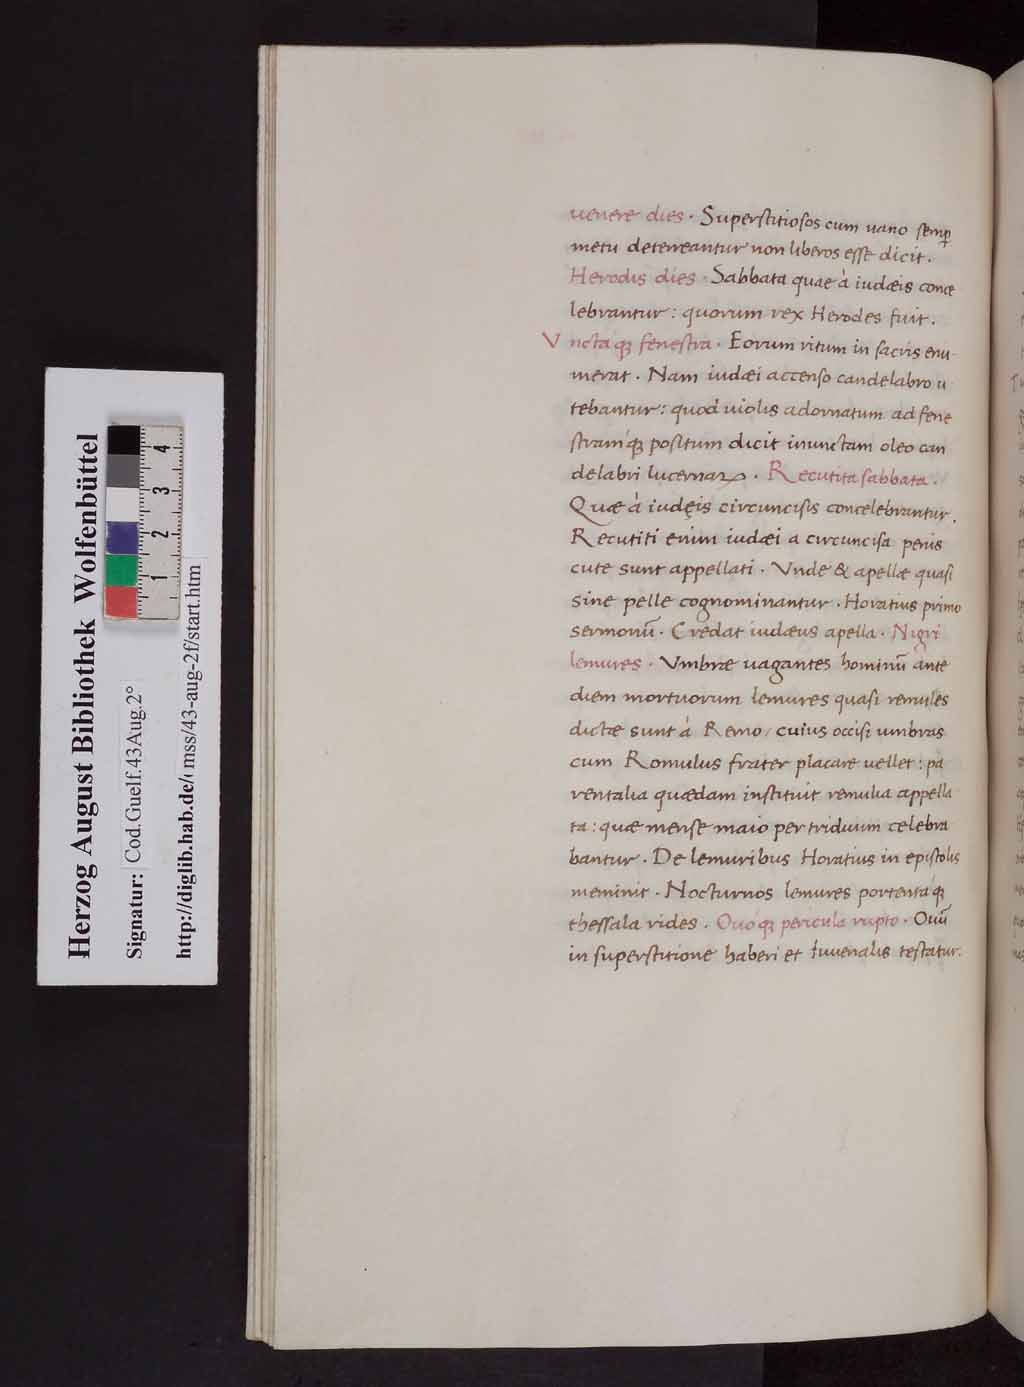 Herzog August Bibliothek Wolfenbüttel
Signatur: Cod.Guelf.43Aug.2°
http://diglib.hab.de/ mss/43-aug-2f/start.htm
1 2 3 4
uenere dies. Superstitiosos cum uano semꝑ
metu deterreantur non liberos esse dicit.
Herodis dies. Sabbata quae à iudæis conce
lebrantur: quorum rex Herodes fuit.
Vnctaqꝫ fenestra. Eorum ritum in sacris enu-
merat. Nam iudæi accenso candelabro u
tebantur: quod uiolis adornatum ad fene
stramqꝫ positum dicit inunctam oleo can
delabri lucernaꝝ. Recutita sabbata.
Quæ à iudęis circuncisis concelebrantur.
Recutiti enim iudæi a circuncisa penis
cute sunt appellati. Vnde & apellæ quasi
sine pelle cognominantur. Horatius primo
sermonū. Credat iudæus apella. Nigri
lemures. Vmbræ uagantes hominū ante
diem mortuorum lemures quasi remules
dictæ sunt à Remo/ cuius occisi umbras
cum Romulus frater placare uellet: pa
rentalia quædam instituit remulia appella
ta: quæ mense maio per triduum celebra
bantur. De lemuribus Horatius in epistolis
meminit. Nocturnos lemures portentaqꝫ
thessala rides. Ouoqꝫ pericula rupto. Ouū
in superstitione haberi et Iuuenalis testatur.